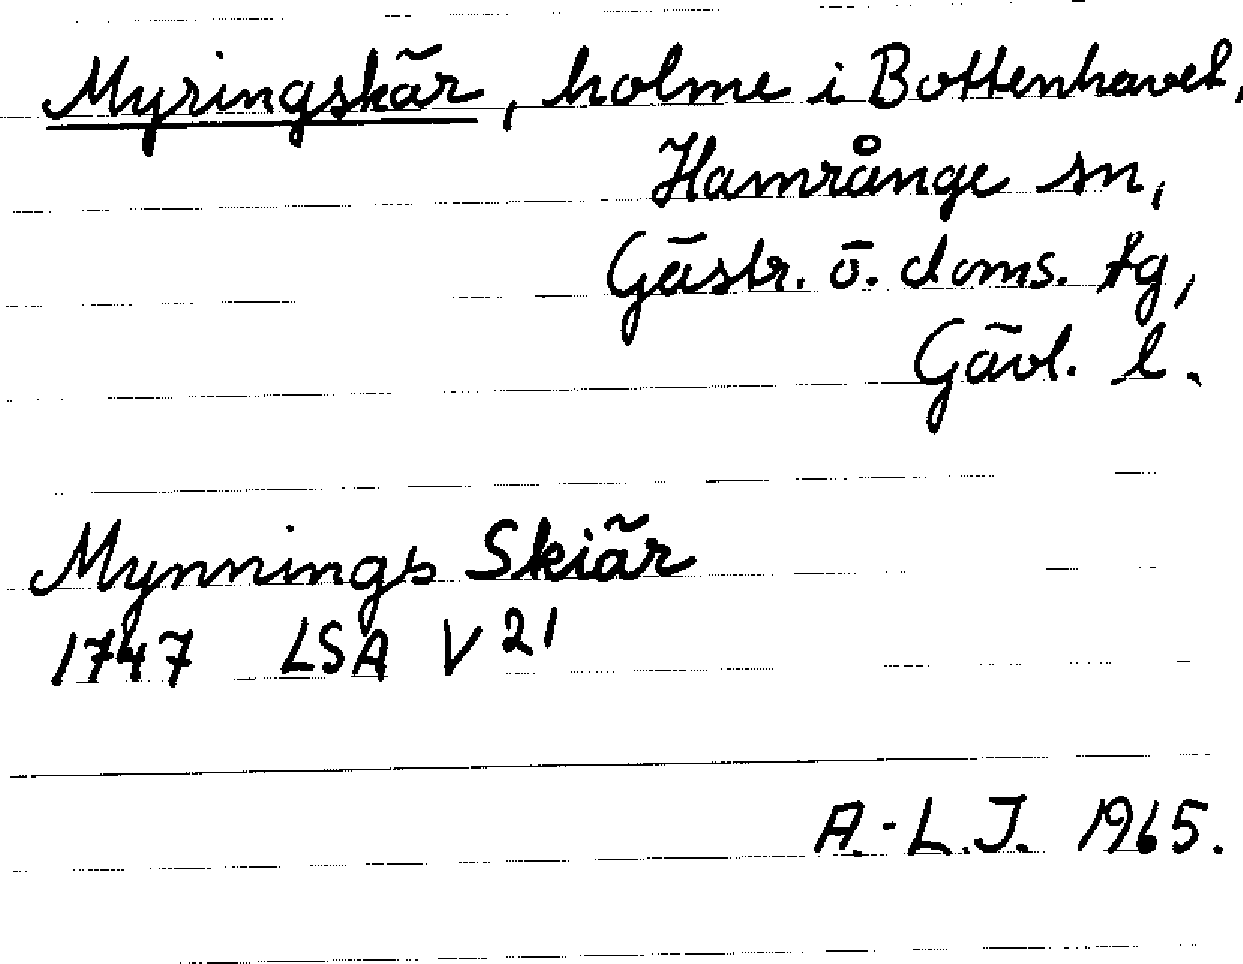 Myringskär, holme i Bottenhavet,
Hamrånge sn,
Gästr. ö. doms. tg,
Gävl. l.
Mynnings Skiär
1747 LSA V 21
A.-L.J. 1965.